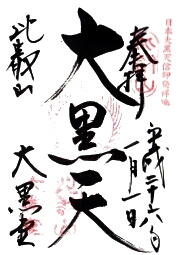 日本大黒天信仰発祥地
奉拝
平成二十六年
一月一日
大黒天
比叡山
大黒堂